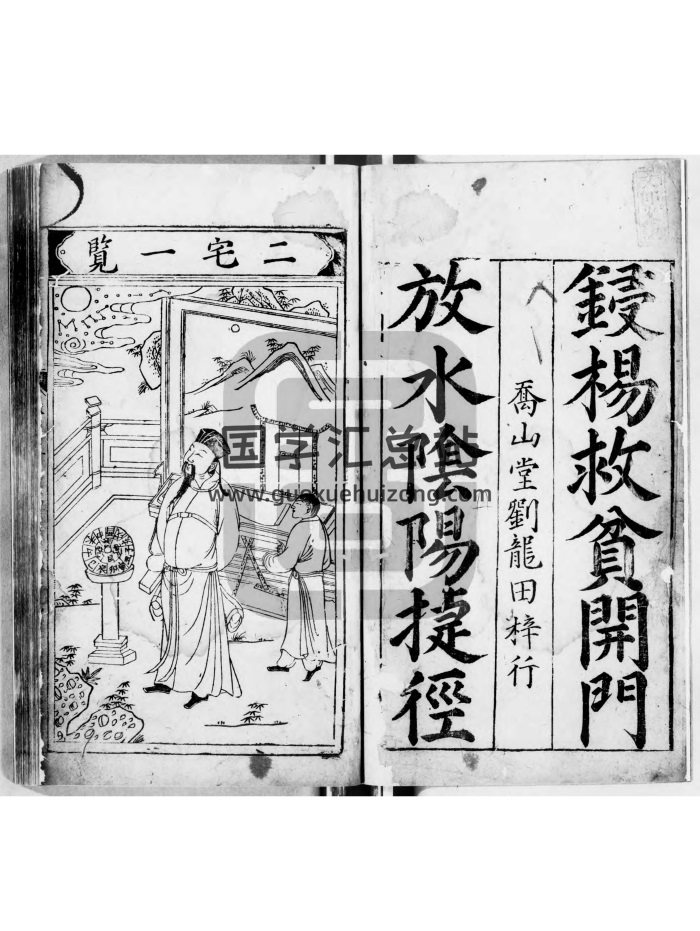 鋟楊救貧開門
喬山堂劉龍田梓行
放水陰陽捷徑
二宅一覽
国学汇总站
www.guoxuehuizong.com